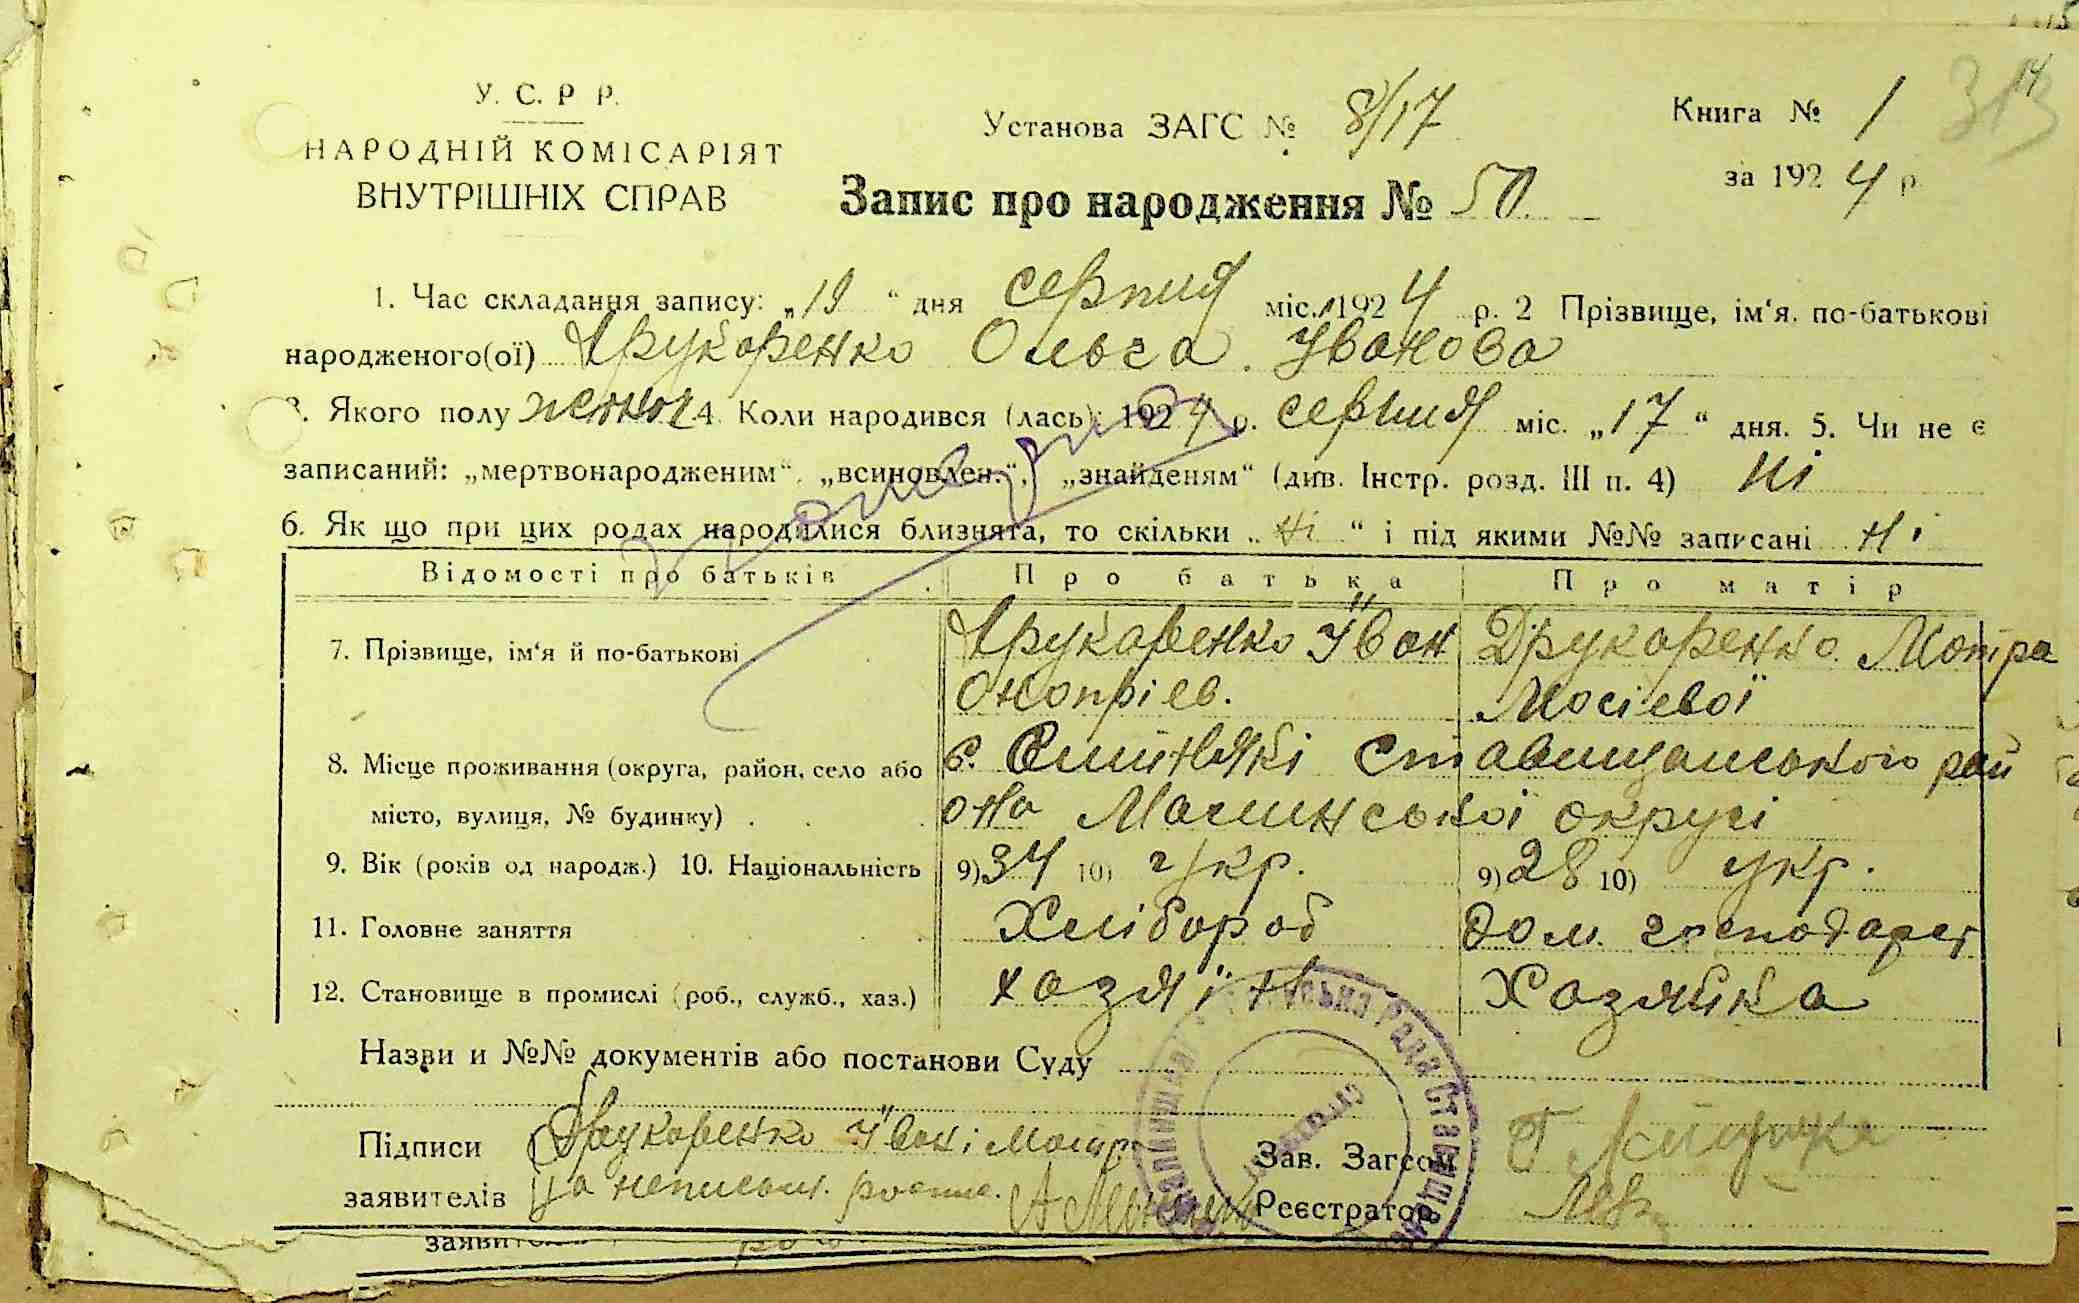 313
У. С. Р Р.
НАРОДНІЙ КОМІСАРІЯТ
ВНУТРІШНІХ СПРАВ
Установа ЗАГС № 8/17
Книга № 1
за 1924 р.
Запис про народження № 50
1. Час складання запису: „19“ дня серпня міс. 1924 р. 2 Прізвище, ім'я, по-батькові
народженого(ої) Друкаренко Ольга Іванова
3. Якого полу жіноч 4. Коли народився (лась): 1924 р. серпня міс. „17“ дня. 5. Чи не є
записаний: „мертвонародженим“, „всиновлен.“, „знайденям“ (див. Інстр. розд. III п. 4) ні
6. Як що при цих родах народилися близнята, то скільки „ні“ і під якими №№ записані ні
Відомості про батьків Про батька Про матір
7. Прізвище, ім'я й по-батькові Друкаренко Їван Друкаренко Мотра
Онопріев. Мосієвої
8. Місце проживання (округа, район, село або с. Ставищанського рай
місто, вулиця, № будинку) она округі
9. Вік (років од народж.) 10. Національність 9) 34 10) укр. 9) 28 10) укр.
11. Головне заняття Хлібороб дом. господарст
12. Становище в промислі (роб., служб., хаз.) хозяїн Хозяйка
Назви и №№ документів або постанови Суду
Підписи Друкаренко Їван і Мотр Зав. Загсом
заявителів за неписьм. роспис. Реєстратор
Рада Ставищанс